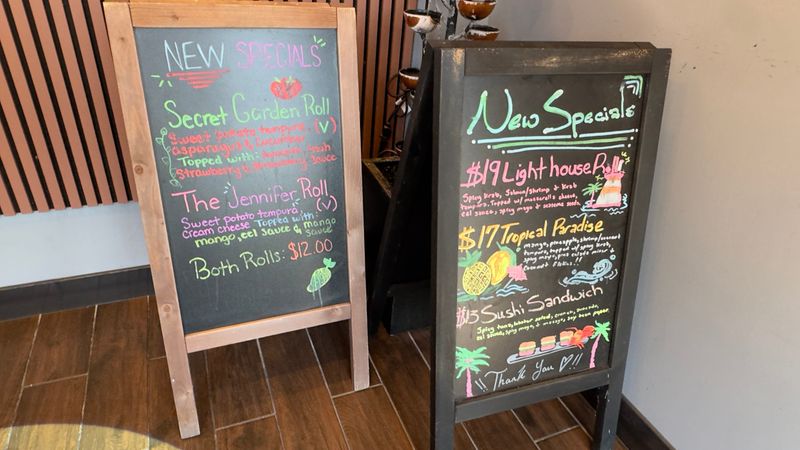 NEW SPECIALS
Secret Garden Roll
Sweet potato tempura, (V)
asparagus & cucumber
Topped with: avocado,
Strawberry & Strawberry Sauce
The Jennifer Roll
Sweet potato tempura (V)
cream cheese Topped with:
mango, eel sauce & mango
sauce
Both Rolls: $12.00
New Specials
$19 Light house Roll
Spicy krab, Salmon/Shrimp & krab
tempura. Topped w/ mozzarella cheese,
eel sauce, spicy mayo & sesame seeds.
$17 Tropical Paradise
mango, pineapple, shrimp/coconut
tempura, topped w/ spicy krab,
spicy mayo,
Coconut flakes!!
$13 Sushi Sandwich
Spicy tuna, lobster salad, crunch, avocado,
eel sauce, spicy mayo, & masago, soy bean paper
Thank You !!